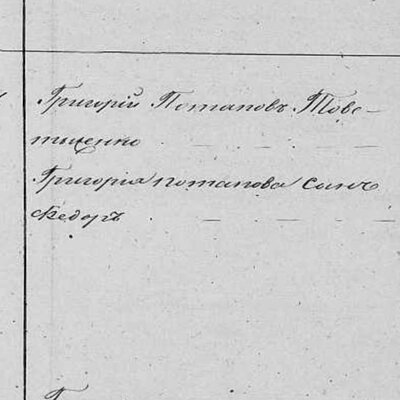 Григорій Потаповъ Тове-
тыценко
Григорія Потапова сынъ
Ѳедоръ